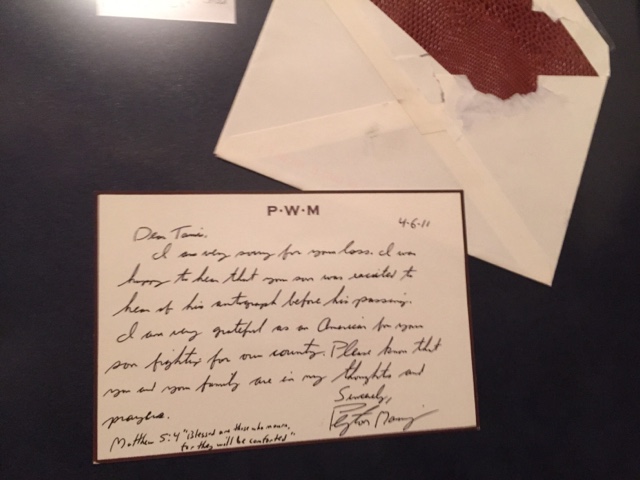 P·W·M
4-6-11
Dear Tami,
I am very sorry for your loss. I was
happy to hear that your son was excited to
hear of his autograph before his passing.
I am very grateful as an American for your
son fighting for our country. Please know that
you and your family are in my thoughts and
prayers.
Sincerely,
Peyton Manning
Matthew 5:4 "Blessed are those who mourn,
for they will be comforted"